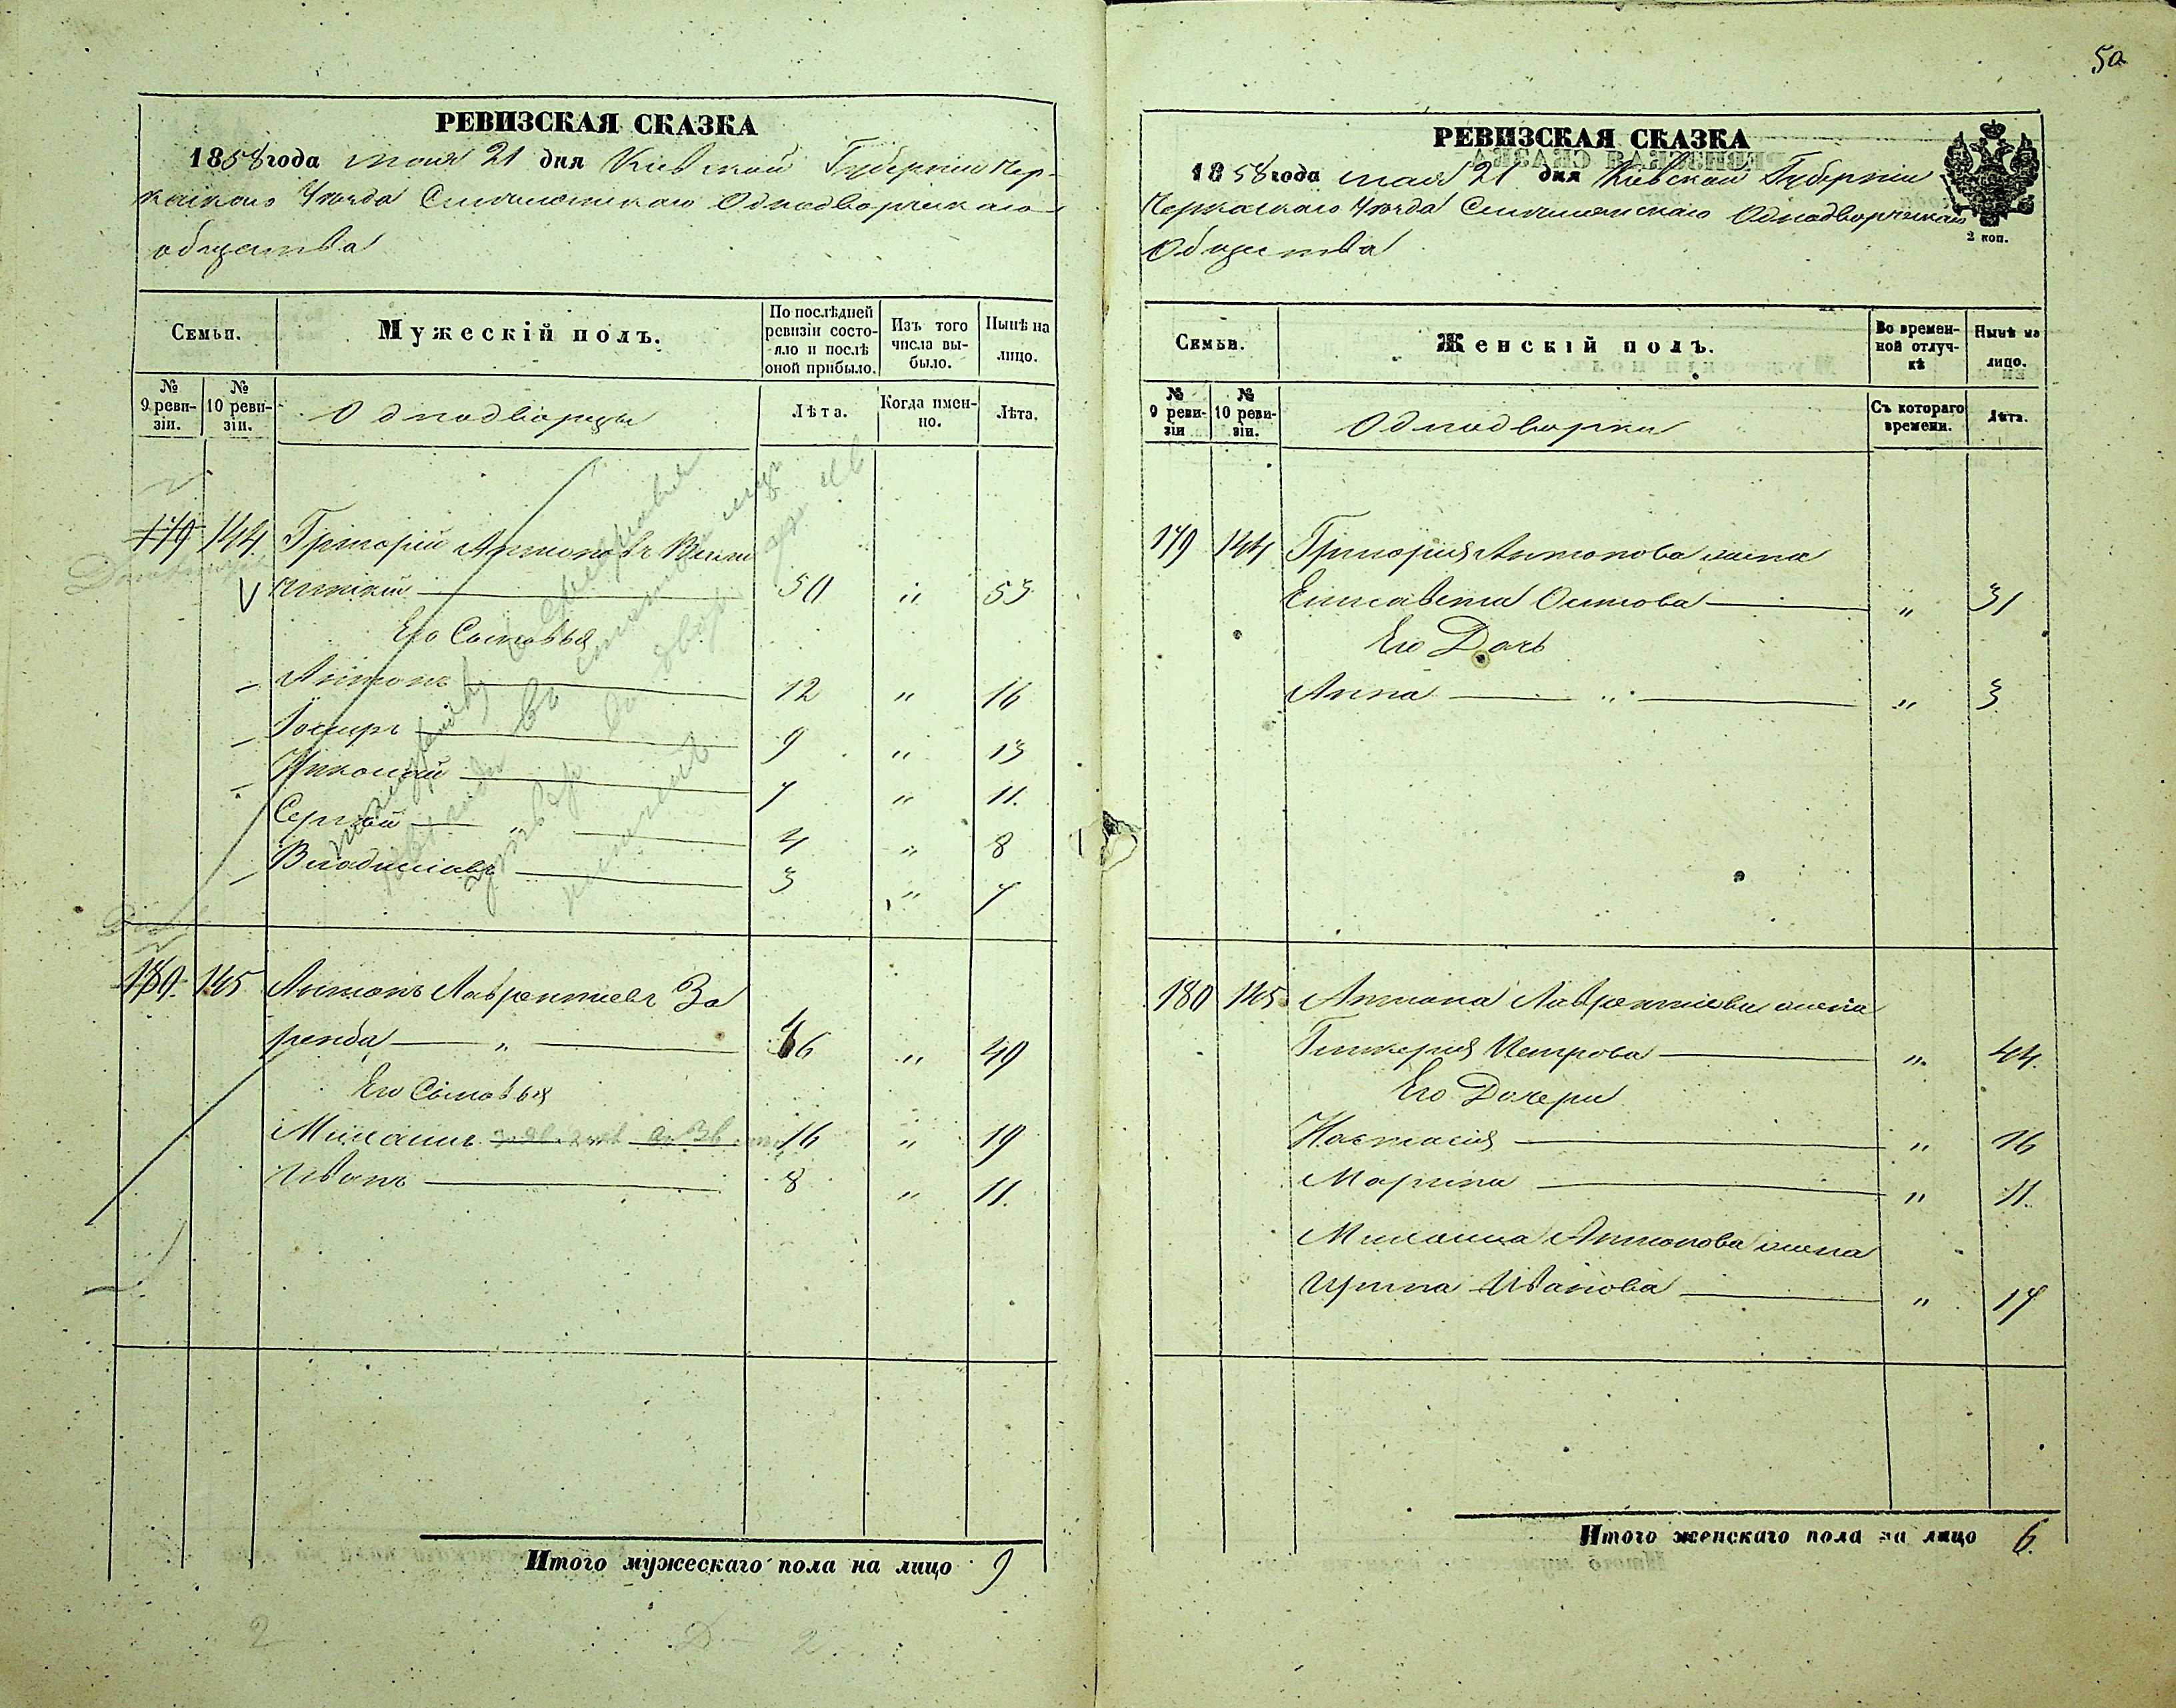 50
РЕВИЗСКАЯ СКАЗКА
1858 года мая 21 дня Киевской Губернии Чер-
каскаго Уѣзда Однодворческаго
общества
Семьи.
Мужескій полъ.
По послѣдней ревизіи состояло и послѣ оной прибыло.
Изъ того числа выбыло.
Нынѣ на лицо.
№ 9 ревизіи.
№ 10 ревизіи.
Однодворцы
Лѣта.
Когда именно.
Лѣта.
179 144 Григорій Антоновъ
50 " 53
Его Сыновья
Антонъ 12 " 16
Іосифъ 9 " 13
Николай 7 " 11.
Сергѣй " 4 " 8
Владиславъ 3 " 7
180. 145 Антонъ Лаврентиевъ За
ремба " 46 " 49
Его Сыновья
Михаилъ 16 " 19
Иванъ 8 " 11.
Итого мужескаго пола на лицо 9
2
2
РЕВИЗСКАЯ СКАЗКА
1858 года мая 21 дня Киевской Губерніи
Черкаскаго Уѣзда Однодворческаго
Общества
2 коп.
Семьи.
Женскій полъ.
Во временной отлучкѣ
Нынѣ на лицо.
№ 9 ревизіи
№ 10 ревизіи.
Однодворки
Съ котораго времени.
Лѣта.
179 144 Григорія Антонова жена
Елисавета Осипова " 31
Его Дочь
Анна " " 3
180 145 Антона Лаврентіева жена
Гликерія Петрова " 44.
Его Дочери
Настасія " 16
Марина " 11.
Михаила Антонова жена
Ирина Иванова " 17
Итого женскаго пола на лицо 6.